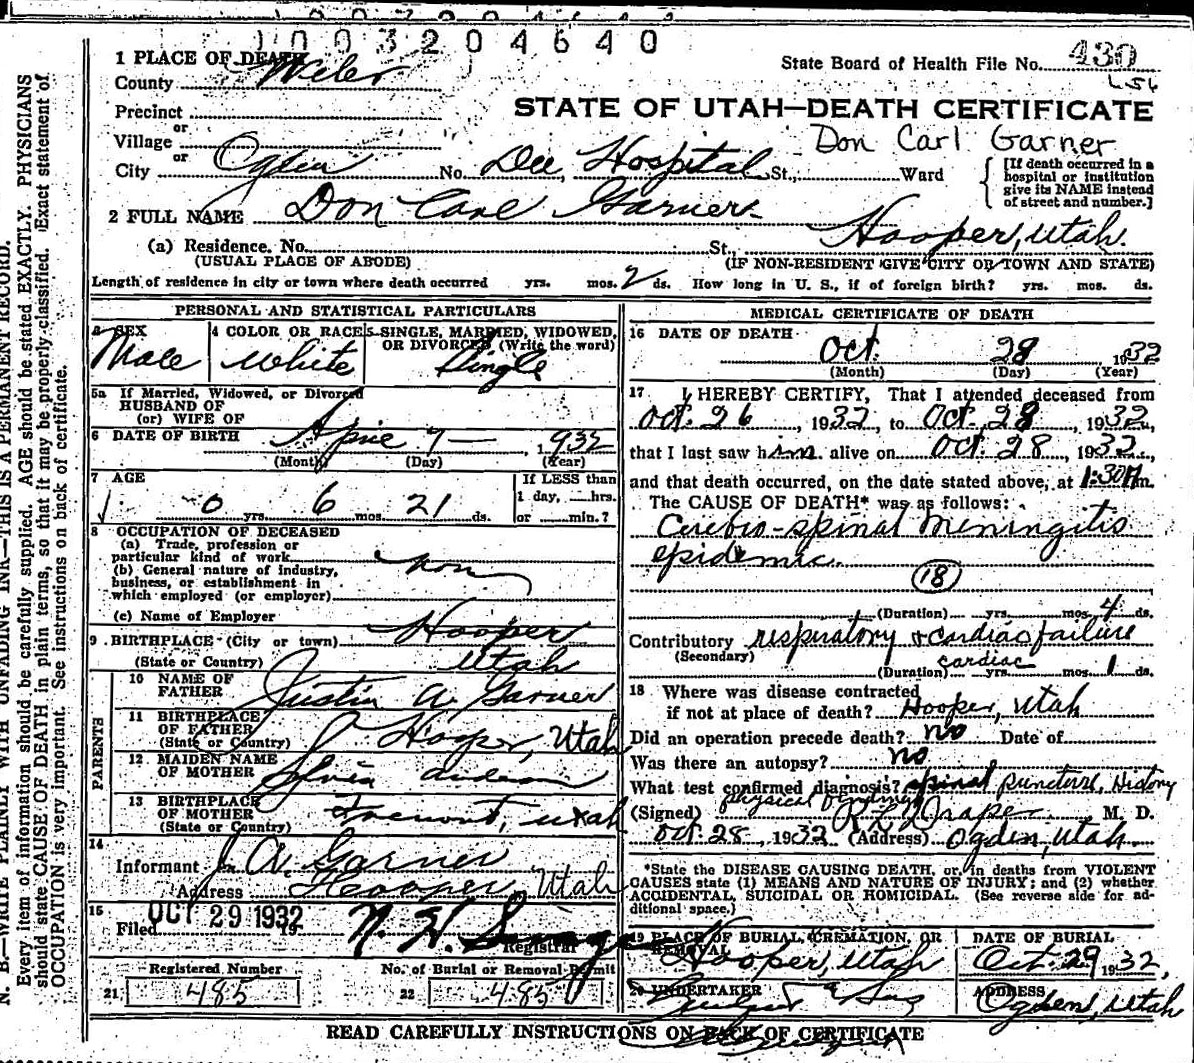 1003204640
1 PLACE OF DEATH
County Weber
State Board of Health File No. 430
Precinct
STATE OF UTAH—DEATH CERTIFICATE
or
Village
Don Carl Garner
or
City Ogden No. Dee Hospital St., Ward
[If death occurred in a
hospital or institution
give its NAME instead
of street and number.]
2 FULL NAME Don Carl Garner
(a) Residence. No. St., Hooper, Utah.
(USUAL PLACE OF ABODE) (IF NON-RESIDENT GIVE CITY OR TOWN AND STATE)
Length of residence in city or town where death occurred yrs. mos. 2 ds. How long in U. S., if of foreign birth? yrs. mos. ds.
PERSONAL AND STATISTICAL PARTICULARS
3 SEX Male
4 COLOR OR RACE White
5 SINGLE, MARRIED, WIDOWED,
OR DIVORCED (Write the word)
Single
5a If Married, Widowed, or Divorced
HUSBAND OF
(or) WIFE OF
6 DATE OF BIRTH April 7— 1932
(Month) (Day) (Year)
7 AGE
If LESS than
1 day, hrs.
or min.?
0 yrs. 6 mos. 21 ds.
8 OCCUPATION OF DECEASED
(a) Trade, profession or
particular kind of work
(b) General nature of industry,
business, or establishment in
which employed (or employer)
(c) Name of Employer
9 BIRTHPLACE (City or town) Hooper
(State or Country) Utah
PARENTS
10 NAME OF
FATHER Justin A. Garner
11 BIRTHPLACE
OF FATHER
(State or Country) Hooper, Utah
12 MAIDEN NAME
OF MOTHER
13 BIRTHPLACE
OF MOTHER
(State or Country) Fremont, Utah
14
Informant J. A. Garner
Address Hooper, Utah
15
Filed OCT 29 1932 19
Registrar
Registered Number
21 485
No. of Burial or Removal Permit
22 485
MEDICAL CERTIFICATE OF DEATH
16 DATE OF DEATH
Oct. 28 1932
(Month) (Day) (Year)
17 I HEREBY CERTIFY, That I attended deceased from
Oct. 26, 1932, to Oct. 28, 1932,
that I last saw him alive on Oct. 28, 1932,
and that death occurred, on the date stated above, at 1:30 A m.
The CAUSE OF DEATH* was as follows:
Cerebro-spinal Meningitis
epidemic.
18
(Duration) yrs. mos. 4 ds.
Contributory respiratory & cardiac failure
(Secondary) cardiac
(Duration) yrs. mos. 1 ds.
18 Where was disease contracted
if not at place of death? Hooper, Utah
Did an operation precede death? no Date of
Was there an autopsy? no
What test confirmed diagnosis? spinal puncture, History
physical findings
(Signed) M. D.
Oct. 28, 1932 (Address) Ogden, Utah
*State the DISEASE CAUSING DEATH, or, in deaths from VIOLENT
CAUSES state (1) MEANS AND NATURE OF INJURY; and (2) whether
ACCIDENTAL, SUICIDAL OR HOMICIDAL. (See reverse side for ad-
ditional space.)
19 PLACE OF BURIAL, CREMATION, OR
REMOVAL
Hooper, Utah
DATE OF BURIAL
Oct. 29 1932,
20 UNDERTAKER
ADDRESS
Ogden, Utah
READ CAREFULLY INSTRUCTIONS ON BACK OF CERTIFICATE
N. B.—WRITE PLAINLY WITH UNFADING INK—THIS IS A PERMANENT RECORD.
Every item of information should be carefully supplied. AGE should be stated EXACTLY. PHYSICIANS
should state CAUSE OF DEATH in plain terms, so that it may be properly classified. Exact statement of
OCCUPATION is very important. See instructions on back of certificate.